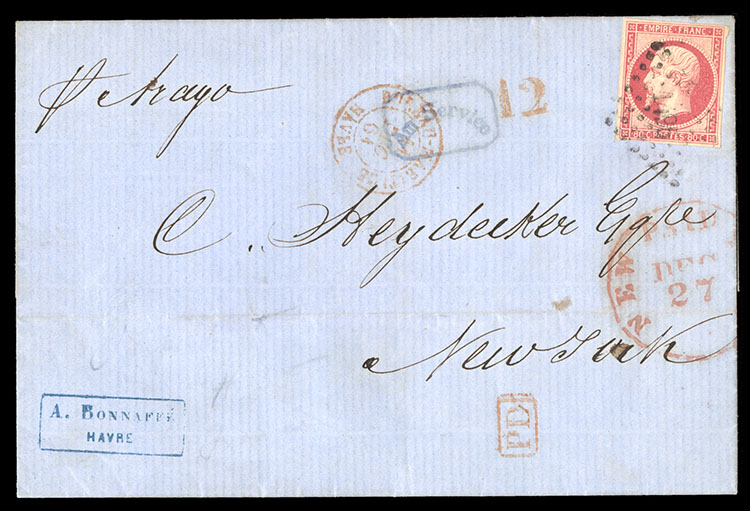 EMPIRE FRANC
80 C POSTES 80 C
pr Arago
12
Am Service
HAVRE
C. Heydecker Esqre
PAID
NEW
DEC
27
New York
A. BONNAFFÉ
HAVRE
PD